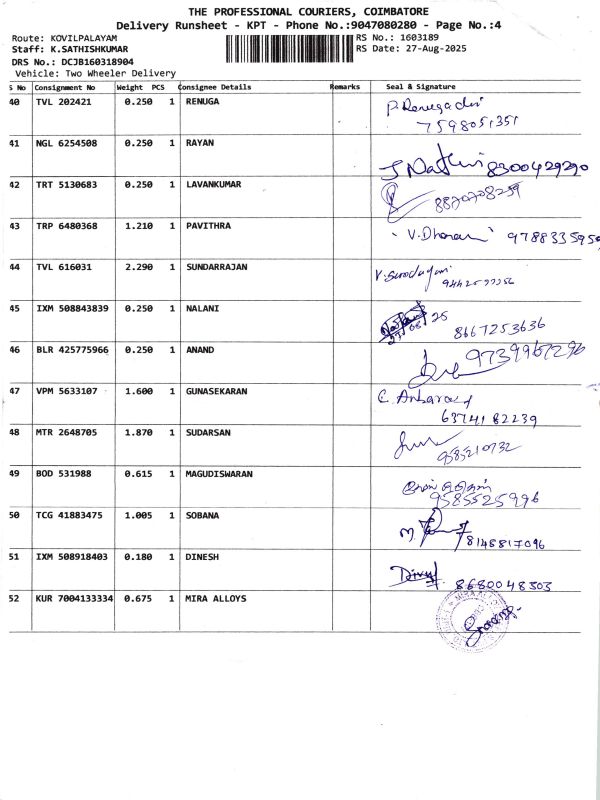 THE PROFESSIONAL COURIERS, COIMBATORE
Delivery Runsheet - KPT - Phone No.:9047080280 - Page No.:4
Route: KOVILPALAYAM RS No.: 1603189
Staff: K.SATHISHKUMAR RS Date: 27-Aug-2025
DRS No.: DCJB160318904
Vehicle: Two Wheeler Delivery
S No Consignment No Weight PCS Consignee Details Remarks Seal & Signature
40 TVL 202421 0.250 1 RENUGA P. Renugadevi
7598051351
41 NGL 6254508 0.250 1 RAYAN 8300429290
42 TRT 5130683 0.250 1 LAVANKUMAR 8870708259
43 TRP 6480368 1.210 1 PAVITHRA V. Dharani 978833595
44 TVL 616031 2.290 1 SUNDARRAJAN
45 IXM 508843839 0.250 1 NALANI 25
8667253636
46 BLR 425775966 0.250 1 ANAND 9739967296
47 VPM 5633107 1.600 1 GUNASEKARAN C. Anbarasy
6374182239
48 MTR 2648705 1.870 1 SUDARSAN 9585210732
49 BOD 531988 0.615 1 MAGUDISWARAN
9585525996
50 TCG 41883475 1.005 1 SOBANA 8148817096
51 IXM 508918403 0.180 1 DINESH Divya 8680048303
52 KUR 7004133334 0.675 1 MIRA ALLOYS